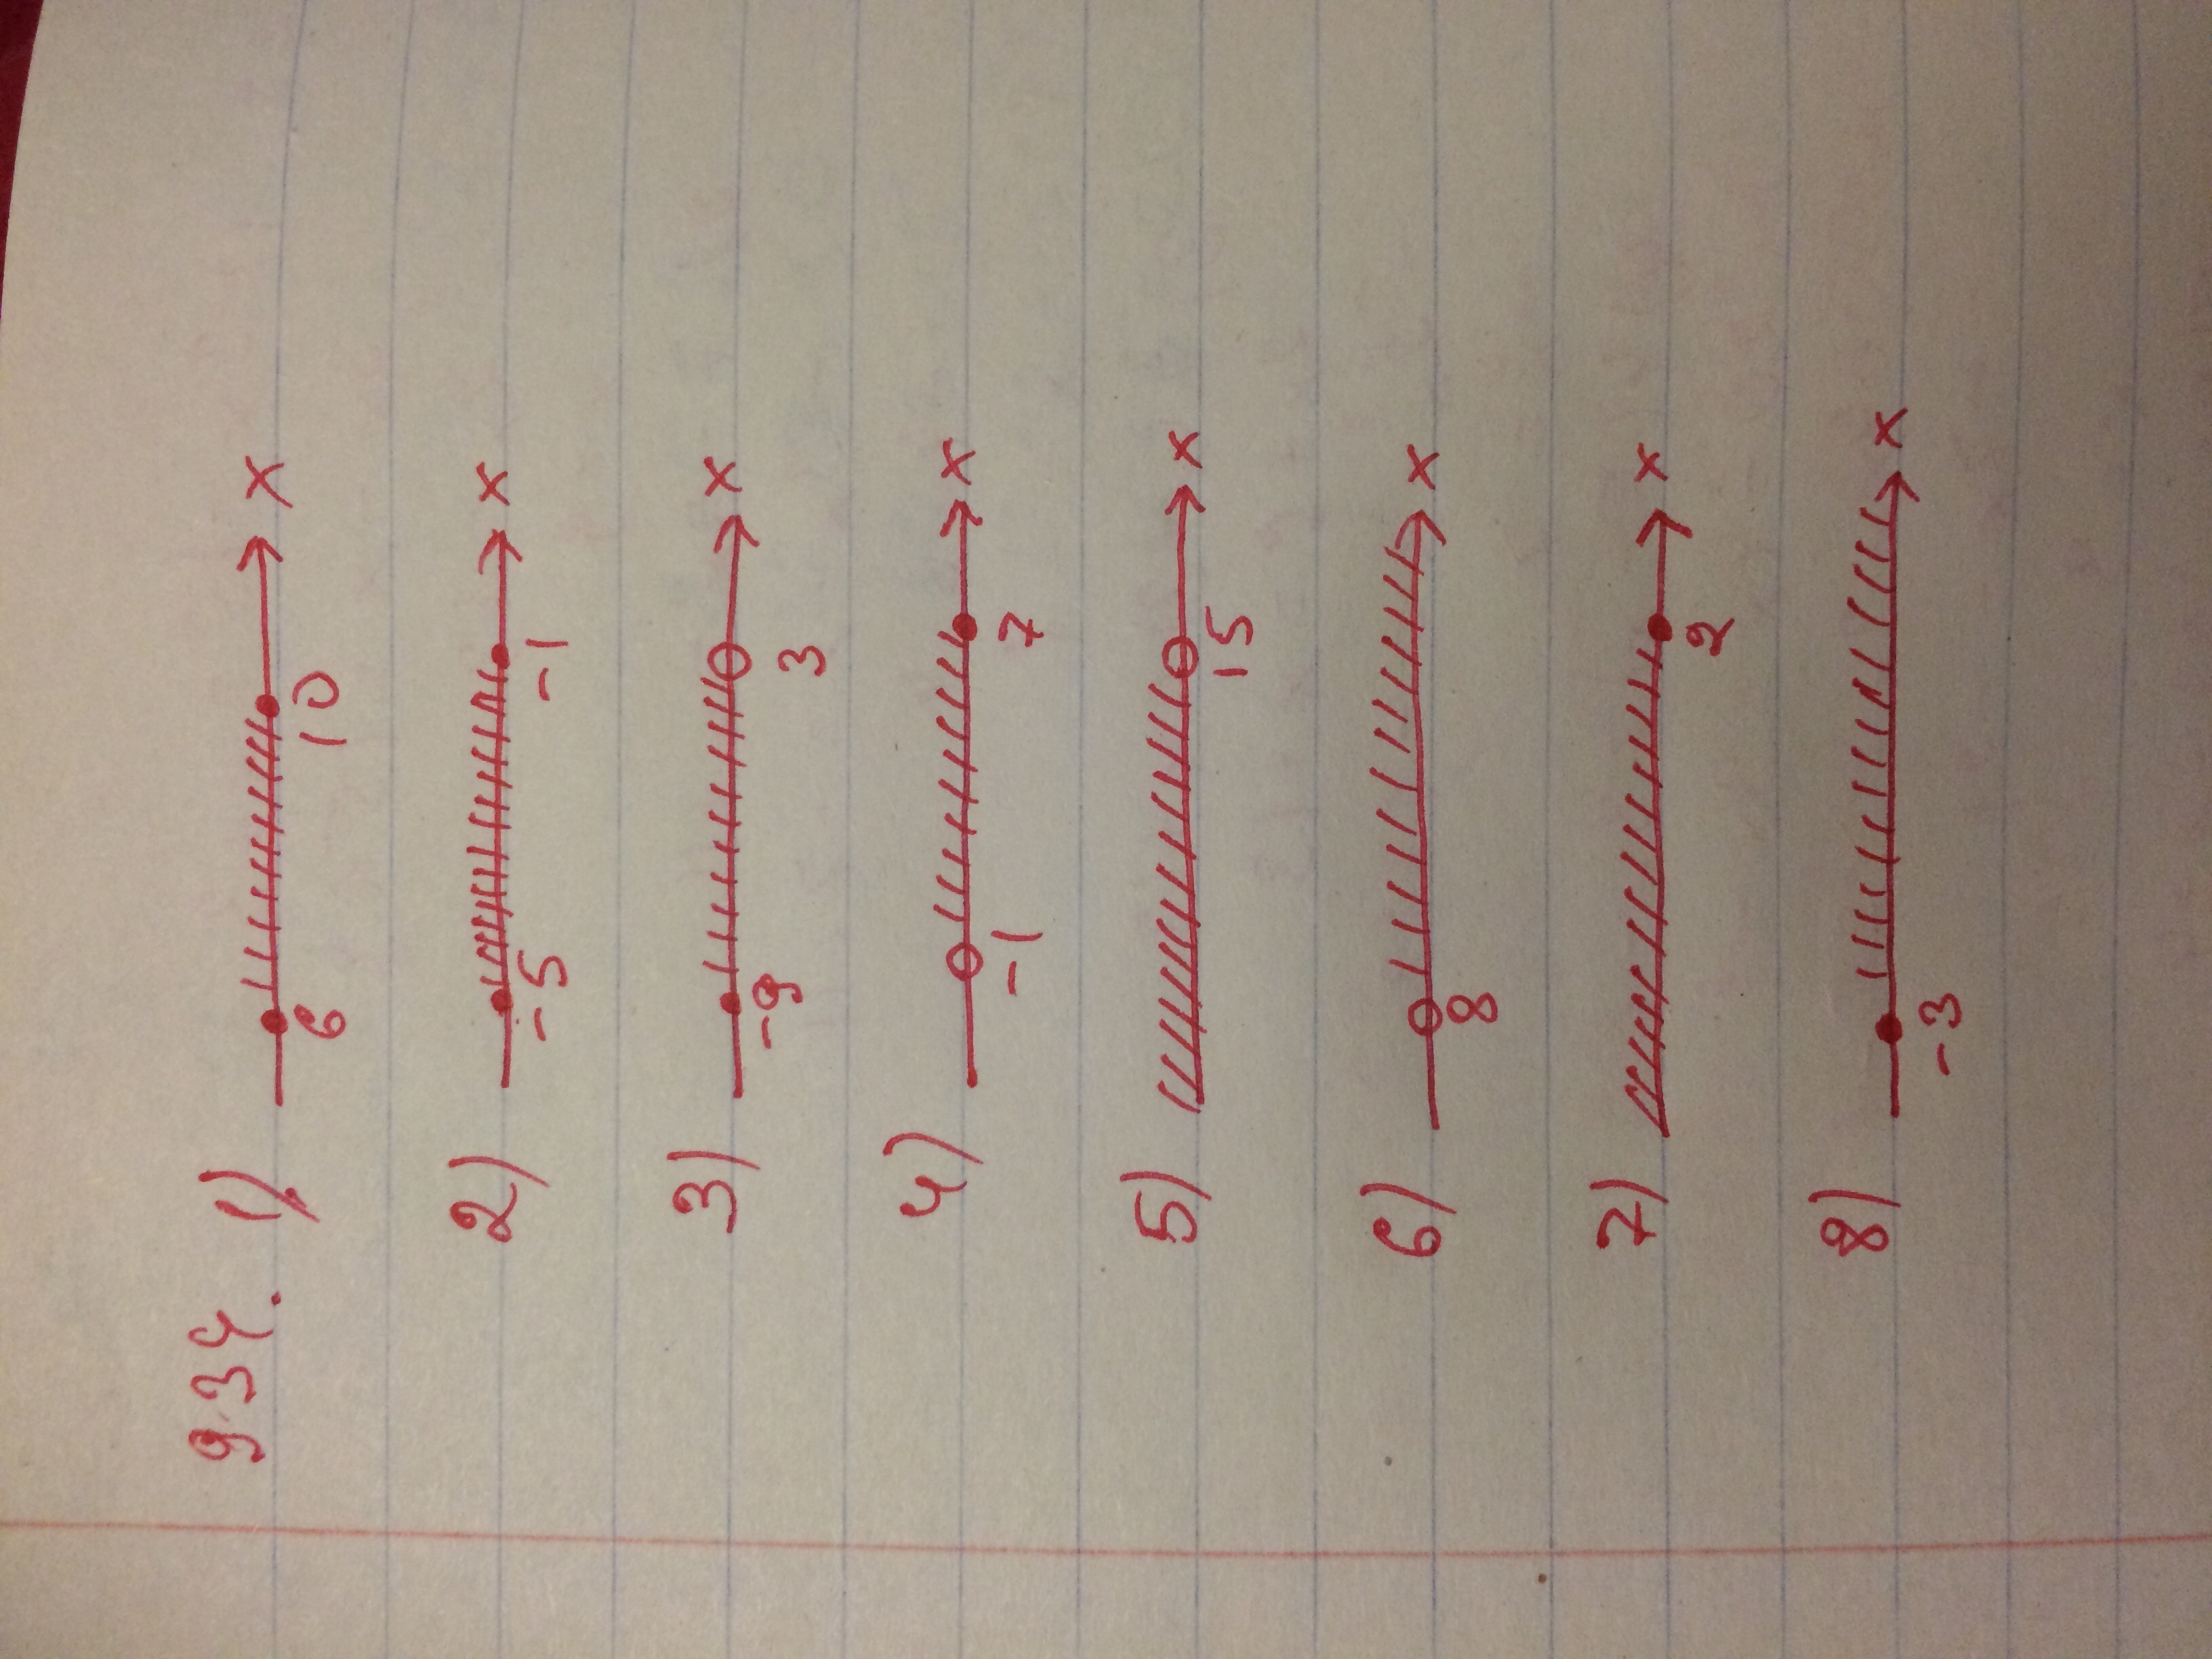 934. 1) 6 10 x
2) -5 -1 x
3) -9 3 x
4) -1 7 x
5) 15 x
6) 8 x
7) 2 x
8) -3 x